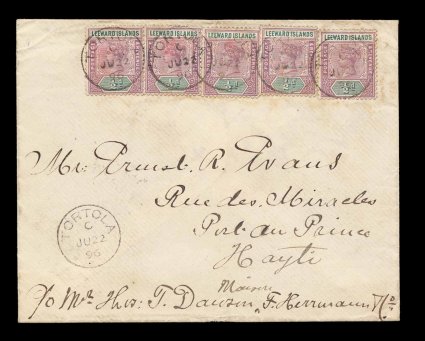 LEEWARD ISLANDS LEEWARD ISLANDS LEEWARD ISLANDS LEEWARD ISLANDS LEEWARD ISLANDS
½d ½d ½d ½d ½d
Mr. Ernest. R. Evans
Rue des. Miracles
Port au Prince
Hayti
TORTOLA
C
JU 22
96
Maison
c/o Mr Thos: T. Dawson "F. Herrmann & Co